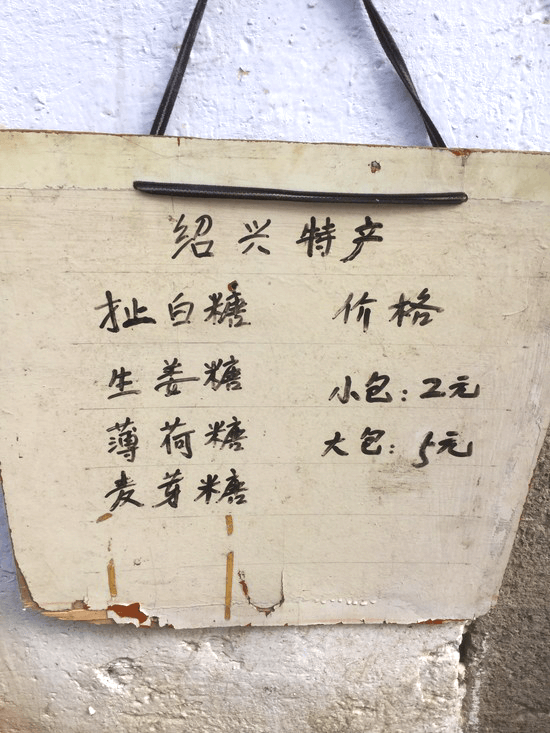 绍兴特产
扯白糖 价格
生姜糖 小包：2元
薄荷糖 大包：5元
麦芽糖